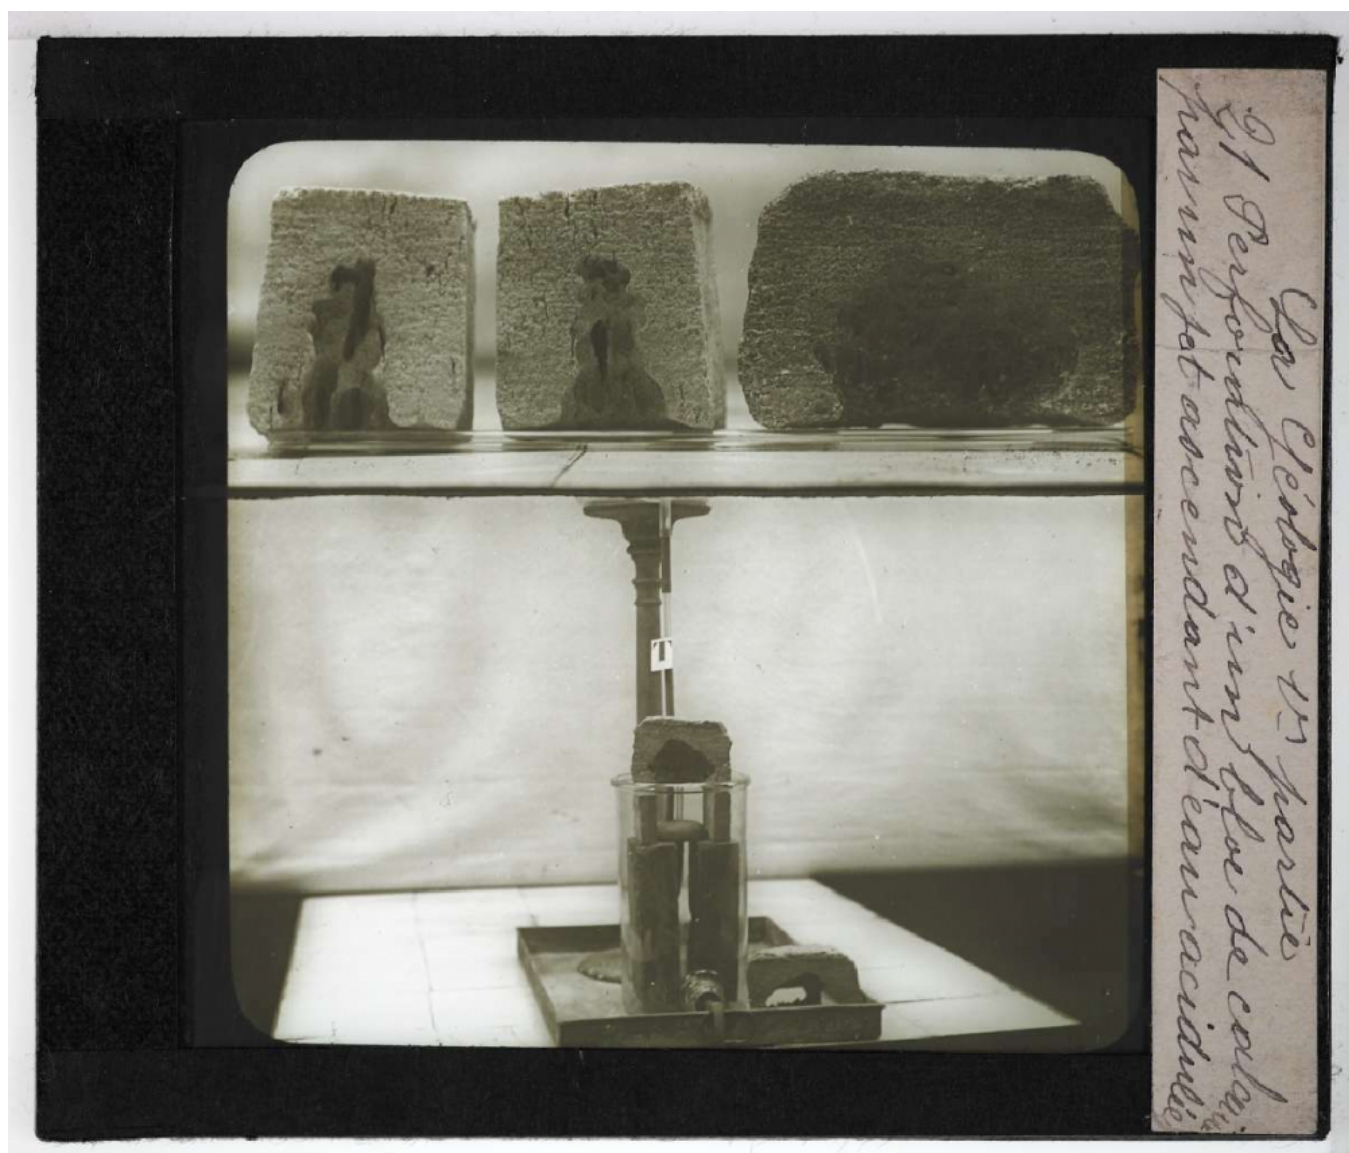 La Géologie 1re partie
21 Perforation d'un bloc de calcaire
par un jet ascendant d'eau acidulée